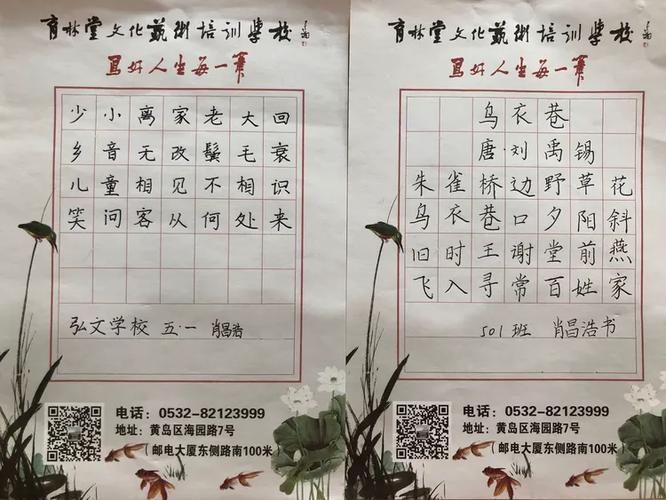 育林堂文化藝術培训學校
寫好人生每一筆
少小离家老大回
乡音无改鬓毛衰
儿童相见不相识
笑问客从何处来
弘文学校 五·一 肖昌浩
电话：0532-82123999
地址：黄岛区海园路7号
（邮电大厦东侧路南100米）
育林堂文化藝術培训學校
寫好人生每一筆
乌衣巷
唐·刘禹锡
朱雀桥边野草花
乌衣巷口夕阳斜
旧时王谢堂前燕
飞入寻常百姓家
501班 肖昌浩书
电话：0532-82123999
地址：黄岛区海园路7号
（邮电大厦东侧路南100米）